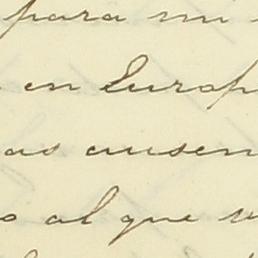 para mi
en Europ
as ausen
o al que